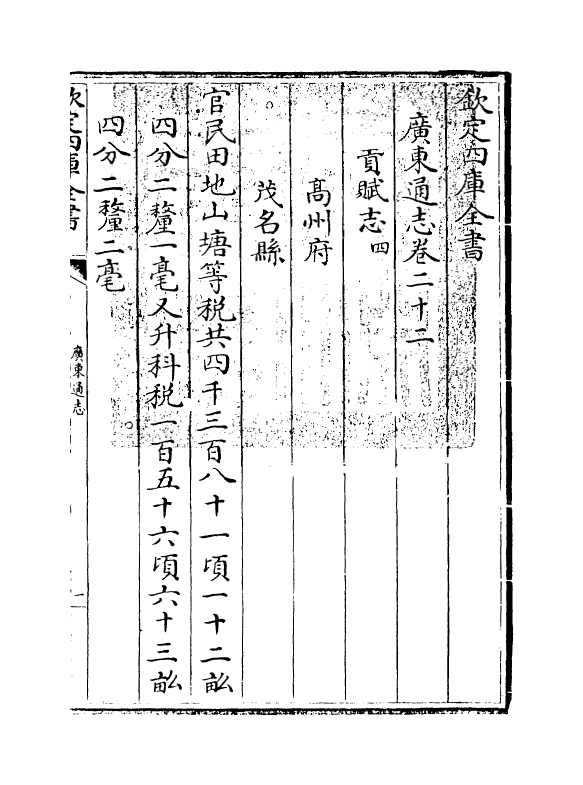 欽定四庫全書
廣東通志卷二十二
貢賦志四
髙州府
茂名縣
官民田地山塘等税共四千三百八十一頃一十二畝
四分二釐一毫又升科税一百五十六頃六十三畝
四分二釐二毫
欽定四庫全書
廣東通志